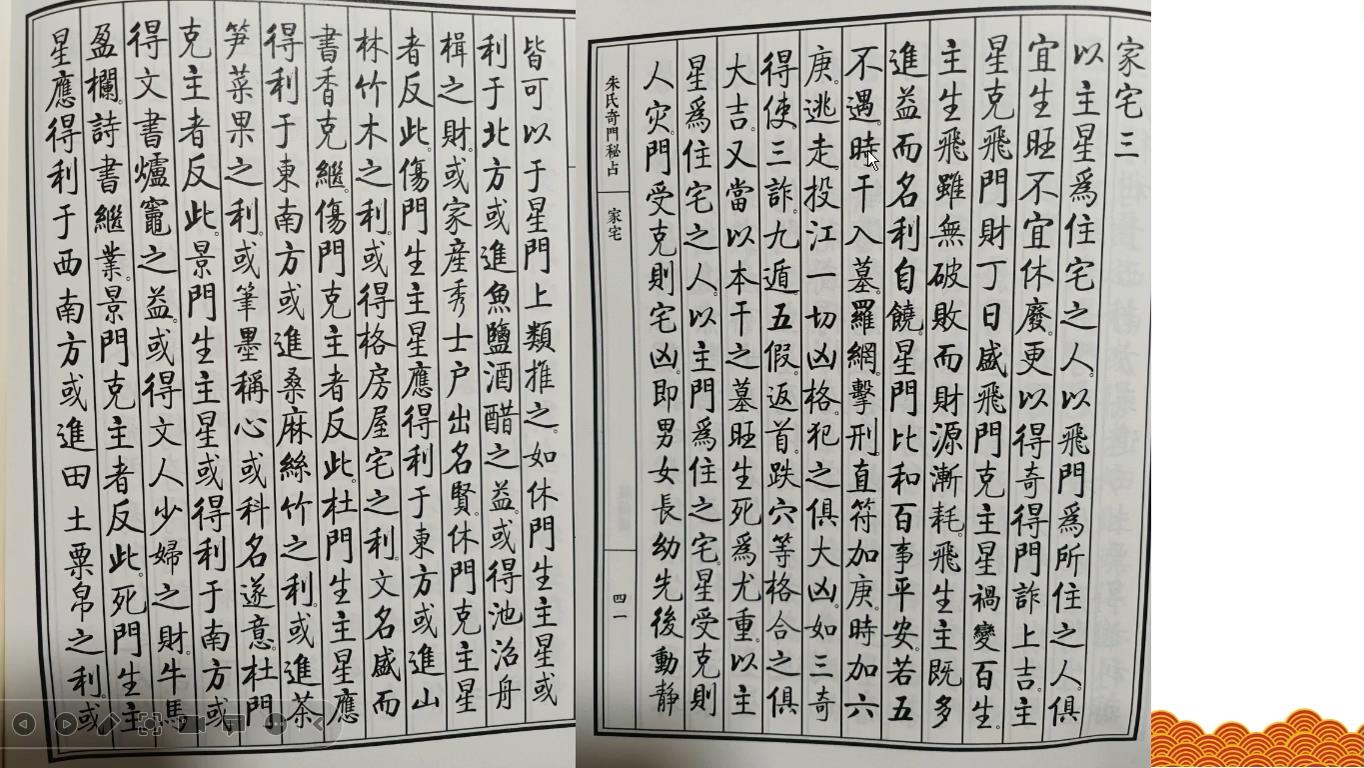 家宅三
以主星爲住宅之人。以飛門爲所住之人。俱
宜生旺不宜休廢。更以得奇得門詐上吉。主
星克飛門財丁日盛飛門克主星禍變百生。
主生飛雖無破敗而財源漸耗。飛生主既多
進益而名利自饒。星門比和百事平安。若五
不遇。時干入墓。羅網擊刑。直符加庚。時加六
庚。逃走投江一切凶格。犯之俱大凶。如三奇
得使三詐。九遁。五假。返首。跌穴等格合之俱
大吉。又當以本干之墓旺生死爲尤重。以主
星爲住宅之人。以主門爲住之宅。星受克則
人灾。門受克則宅凶。即男女長幼先後動靜
朱氏奇門秘占
家宅
四一
皆可以于星門上類推之。如休門生主星或
利于北方或進魚鹽酒醋之益。或得池沼舟
楫之財。或家産秀士户出名賢。休門克主星
者反此。傷門生主星應得利于東方或進山
林竹木之利。或得格房屋宅之利。文名盛而
書香克繼。傷門克主者反此。杜門生主星應
得利于東南方或進桑麻絲竹之利。或進茶
笋菜果之利。或筆墨稱心或科名遂意。杜門
克主者反此。景門生主星或得利于南方或
得文書爐竈之益。或得文人少婦之財。牛馬
盈欄。詩書繼業。景門克主者反此。死門生主
星應得利于西南方或進田土粟帛之利。或